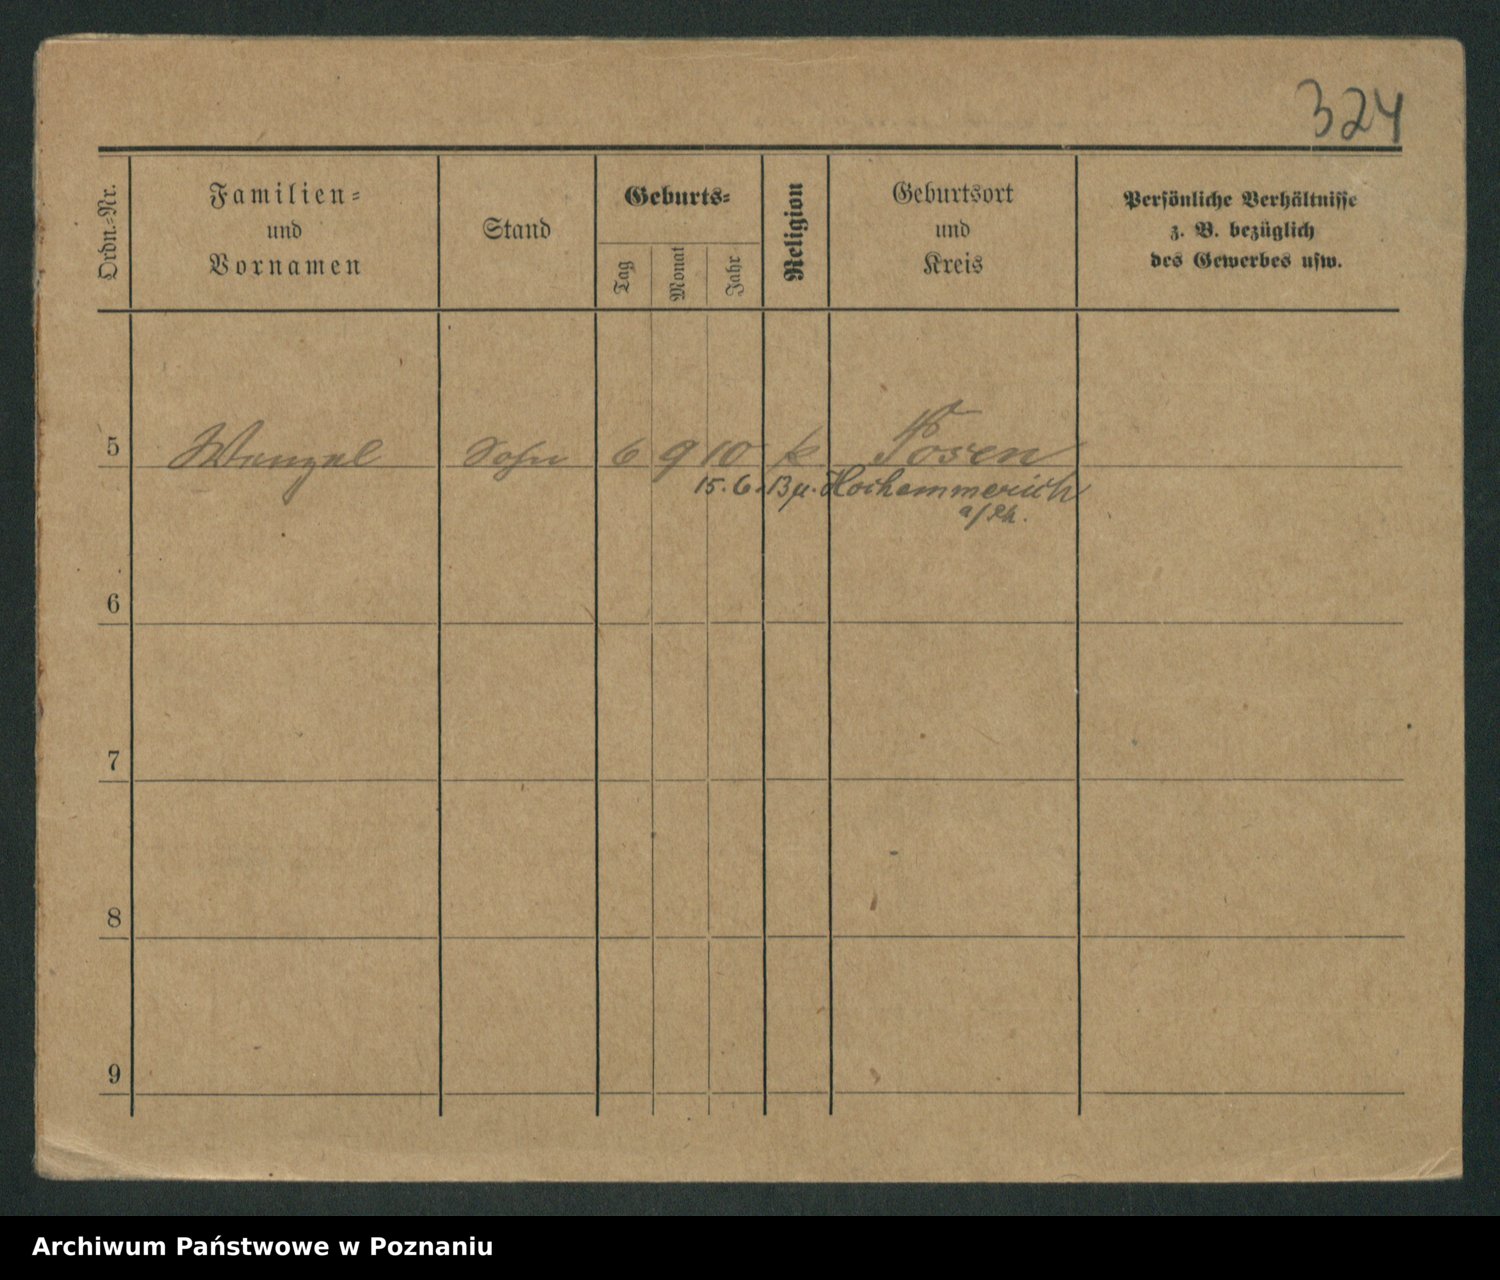 324
Ordn.-Nr.
Familien-
und
Vornamen
Stand
Geburts-
Tag
Monat
Jahr
Religion
Geburtsort
und
Kreis
Persönliche Verhältnisse
z. B. bezüglich
des Gewerbes usw.
5 Wenzel Sohn 6 9 10 k Posen
15. 6. 13 Hochemmerich
a/Rh.
6
7
8
9
Archiwum Państwowe w Poznaniu